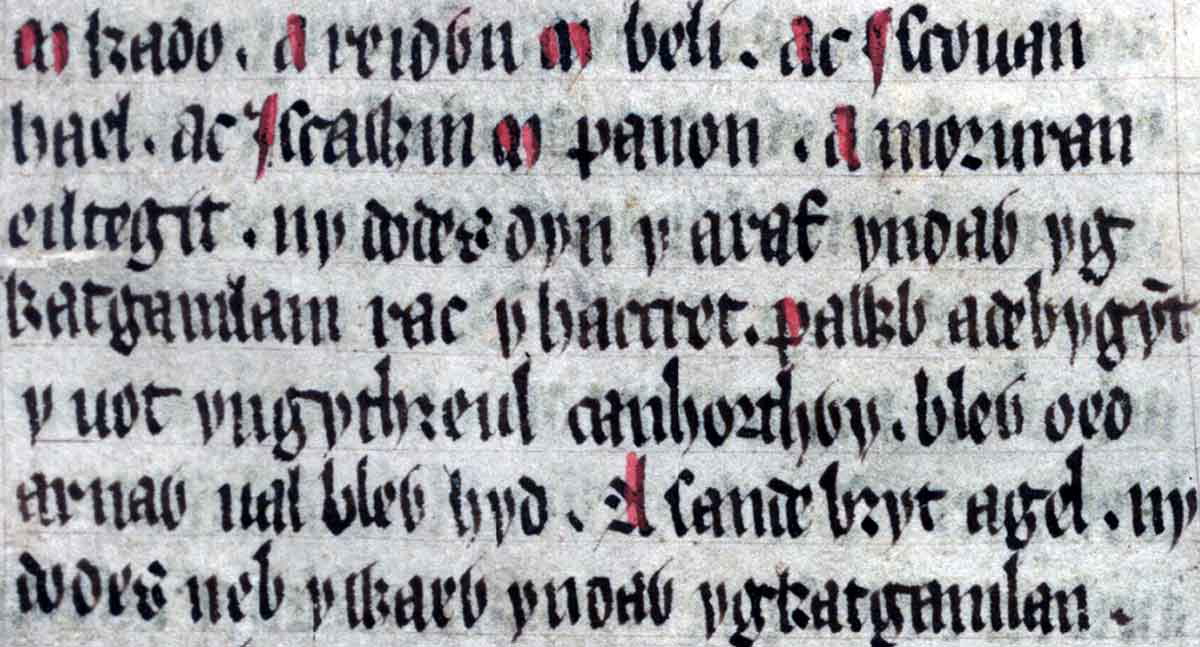 m kado . A reidỽn m beli . ac Iscouan
hael . ac Iscawin m panon . A moruran
eiltegit . ny dodes dyn y araf yndaỽ yg
katgamlam rac yhacret . Pawb adebygyt̄
y uot yngythreul canhorthỽy . bleỽ oed
arnaỽ ual bleỽ hyd . A sande bryt agel . ny
dodes neb ywaeỽ yndaỽ ygkatgamlan .